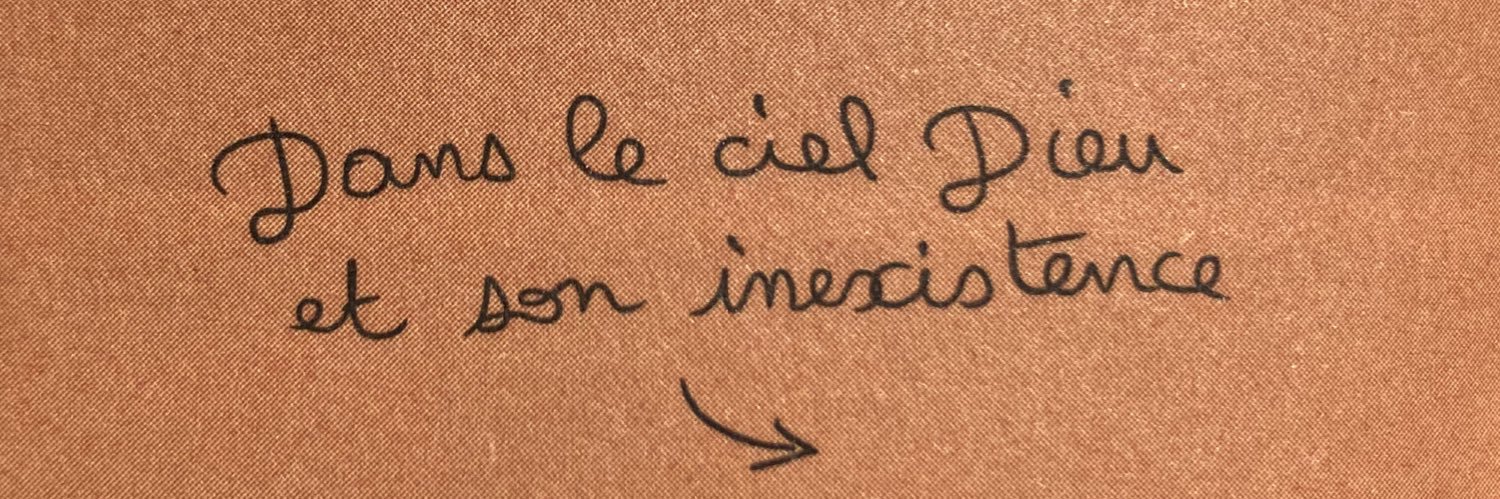 Dans le ciel Dieu
et son inexistence